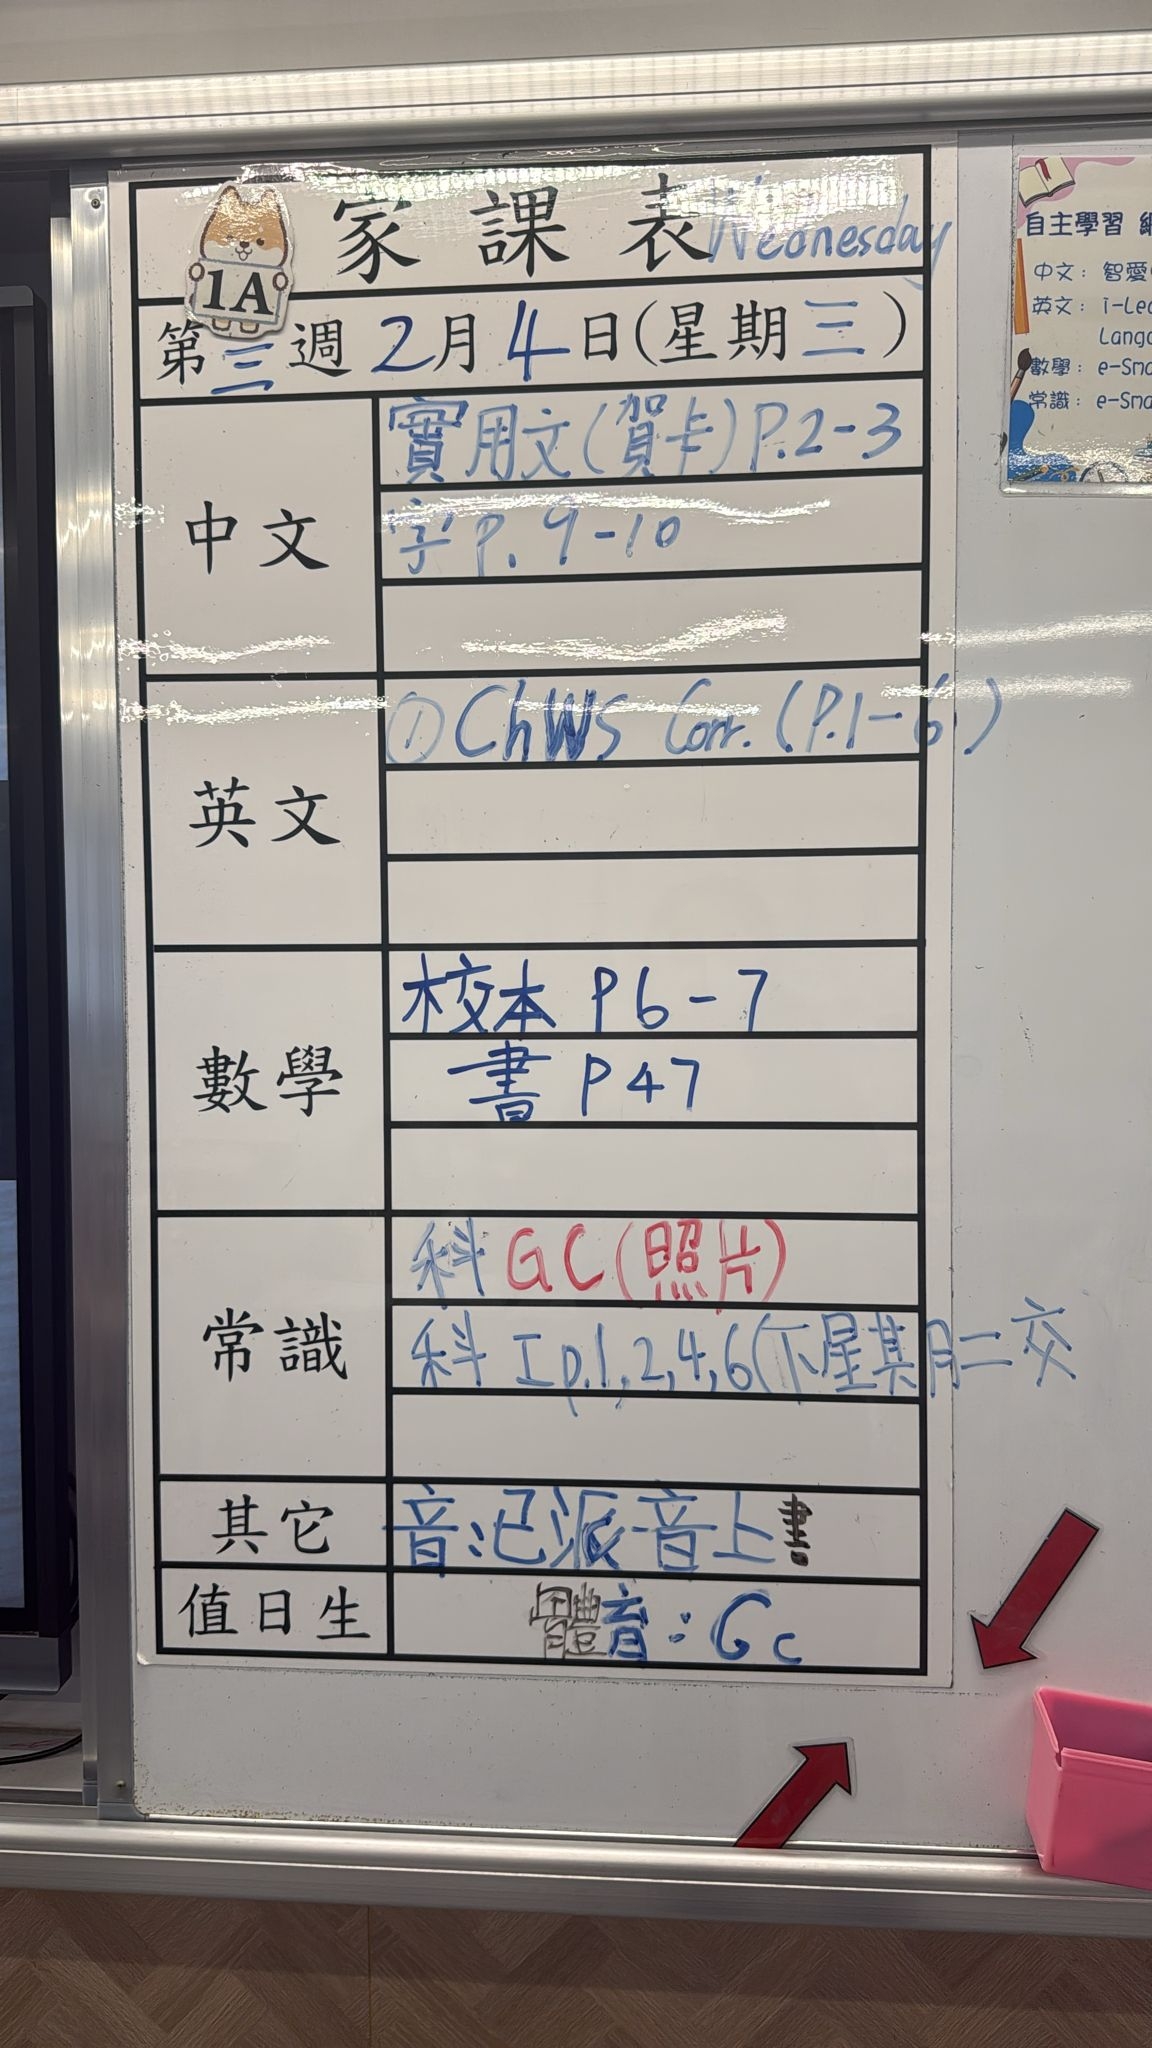 家課表 Wednesday
1A
第三週 2月4日(星期三)
中文
實用文(賀卡)P.2-3
字P.9-10
英文
① ChWS Corr. (P.1-6)
數學
校本 P6-7
書 P47
常識
科 GC(照片)
科 I p.1,2,4,6(下星期二交
其它
音:已派音上書
值日生
體育:Gc
自主學習
中文:智愛
英文:i-Lea
Lang
數學:e-Sma
常識:e-Sma